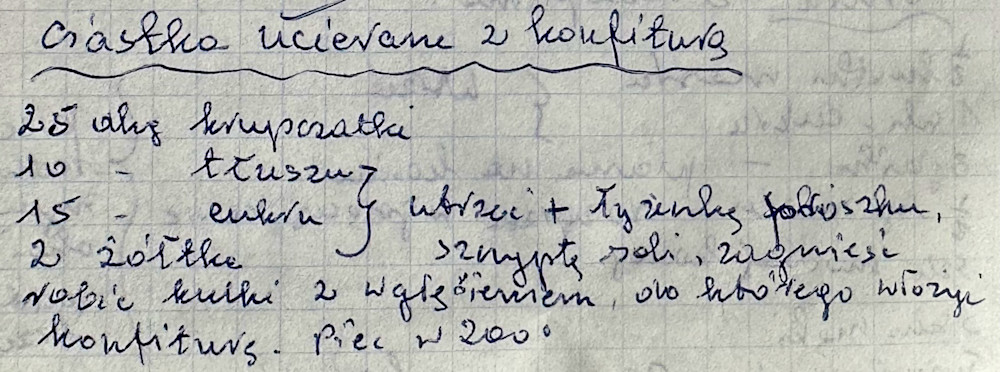 Ciastka ucierane z konfiturą
25 dkg krupczatki
10 - tłuszczu
15 - cukru } utrzeć + łyżeczkę proszku,
2 żółtka szczyptę soli, zagnieść
robić kulki z wgłębieniem, do którego włożyć
konfiturę. Piec w 200°